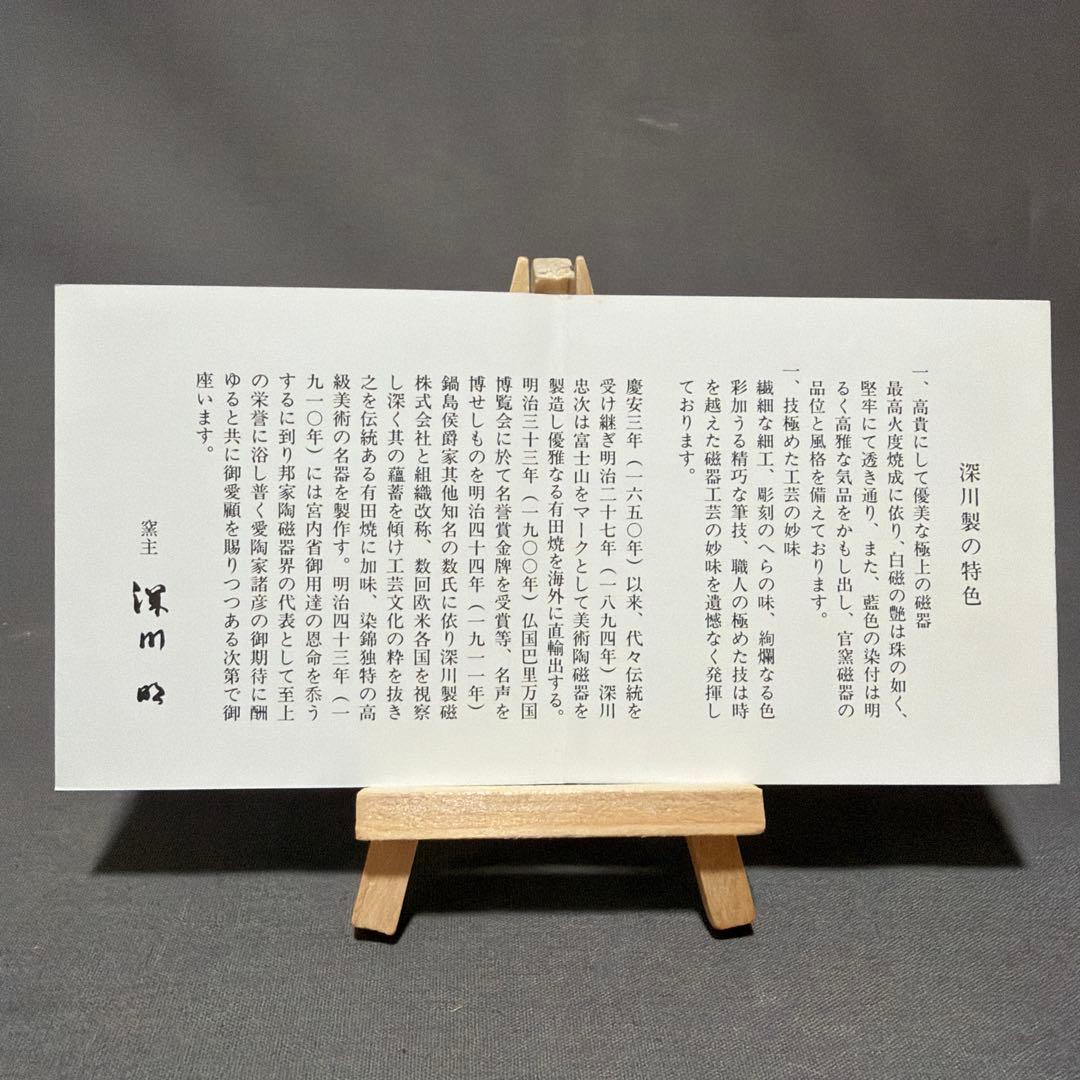 深川製の特色
一、高貴にして優美な極上の磁器
最高火度焼成に依り、白磁の艶は珠の如く、
堅牢にて透き通り、また、藍色の染付は明
るく高雅な気品をかもし出し、官窯磁器の
品位と風格を備えております。
一、技極めた工芸の妙味
繊細な細工、彫刻のへらの味、絢爛なる色
彩加うる精巧な筆技、職人の極めた技は時
を越えた磁器工芸の妙味を遺憾なく発揮し
ております。
慶安三年（一六五〇年）以来、代々伝統を
受け継ぎ明治二十七年（一八九四年）深川
忠次は富士山をマークとして美術陶磁器を
製造し優雅なる有田焼を海外に直輸出する。
明治三十三年（一九〇〇年）仏国巴里万国
博覧会に於て名誉賞金牌を受賞等、名声を
博せしものを明治四十四年（一九一一年）
鍋島侯爵家其他知名の数氏に依り深川製磁
株式会社と組織改称、数回欧米各国を視察
し深く其の蘊蓄を傾け工芸文化の粋を抜き
之を伝統ある有田焼に加味、染錦独特の高
級美術の名器を製作す。明治四十三年（一
九一〇年）には宮内省御用達の恩命を忝う
するに到り邦家陶磁器界の代表として至上
の栄誉に浴し普く愛陶家諸彦の御期待に酬
ゆると共に御愛顧を賜りつつある次第で御
座います。
窯主 深川 明